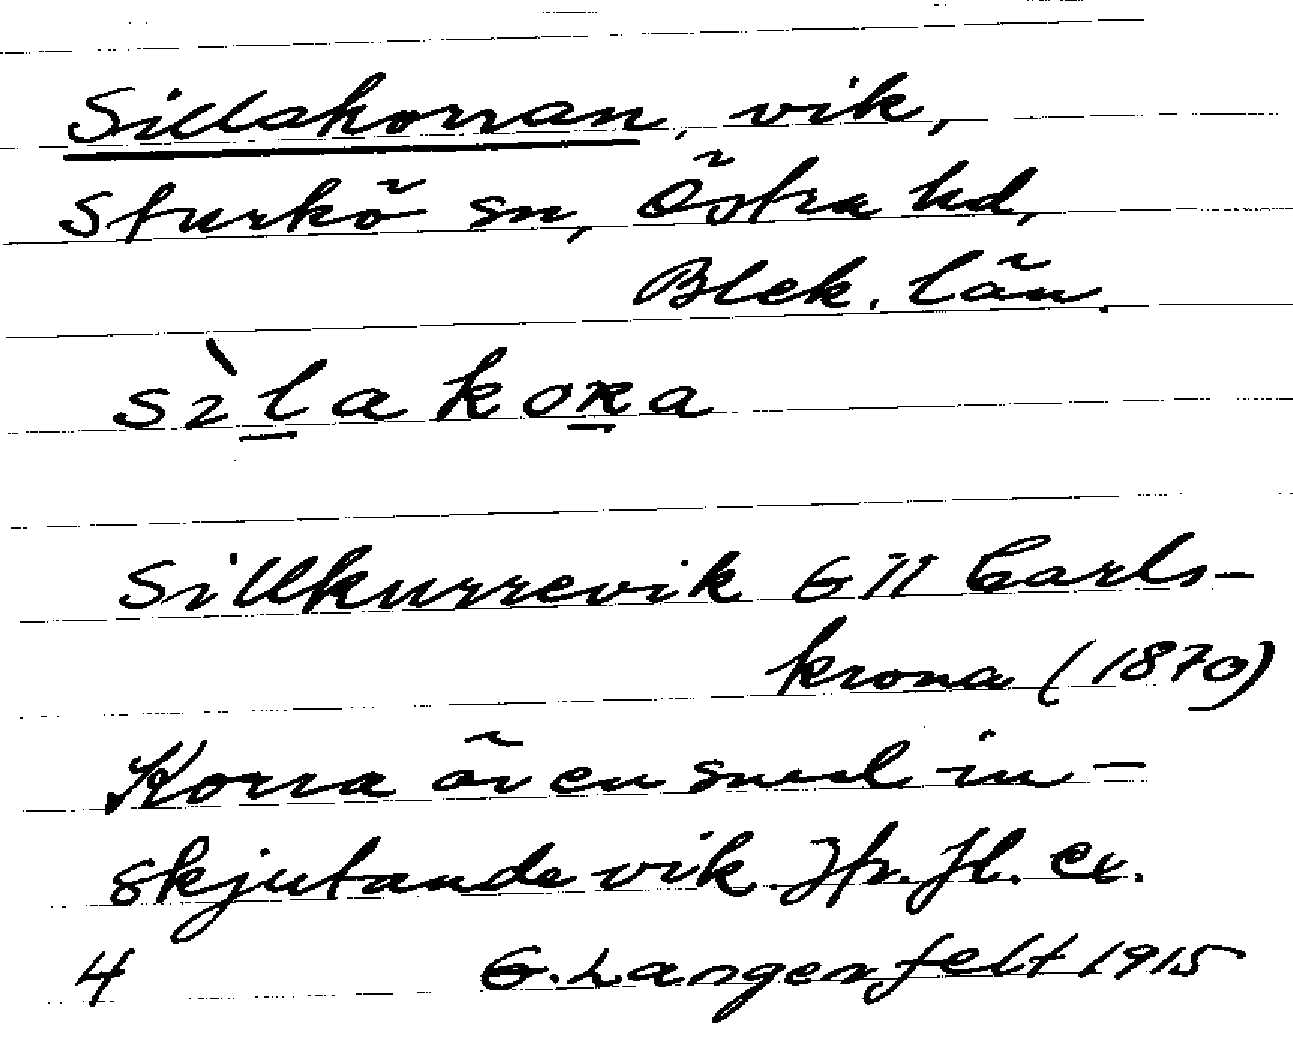 Sillakorran, vik,
Sturkö sn, Östra hd,
Blek. län.
sìlakoʀa
Sillkurrevik G II Carls-
krona (1870)
Korra är en smal in-
skjutande vik Jfr. fl. ex.
4 G. Langenfelt 1915